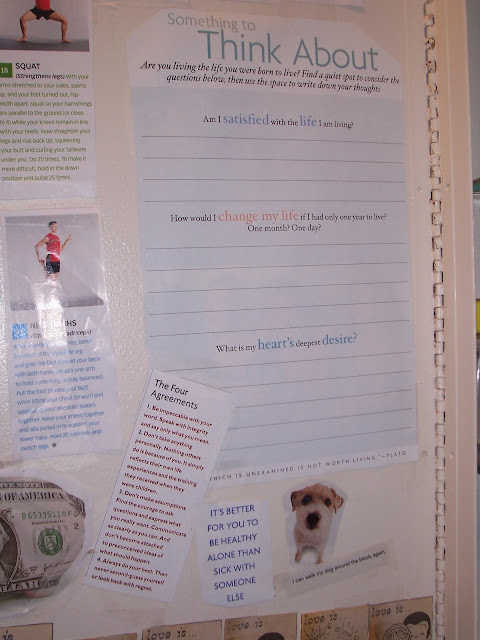 Something to
Think About
Are you living the life you were born to live? Find a quiet spot to consider the
questions below, then use the space to write down your thoughts
Am I satisfied with the life I am living?
How would I change my life if I had only one year to live?
One month? One day?
What is my heart's deepest desire?
WHICH IS UNEXAMINED IS NOT WORTH LIVING."—PLATO
18 SQUAT
(Strengthens legs) With your
arms stretched to your sides, palms
up, and your feet turned out, hip-
width apart, squat so your hamstrings
are parallel to the ground (or close
to it) while your knees remain in line
with your heels. Now straighten your
legs and rise back up, squeezing
your butt and curling your tailbone
under you. Do 25 times. To make it
more difficult, hold in the down
position and pulse 25 times.
and grab the foot behind your back
with both hands
Pull the foot
while lifting your chest forward and
squeezing your shoulder blades
together. Keep your knees together
and abs pulled in to support your
lower back. Hold 30 seconds and
switch legs.
The Four
Agreements
1. Be impeccable with your
word. Speak with integrity
and say only what you mean.
2. Don't take anything
personally. Nothing others
do is because of you. It simply
reflects their own life
experiences and the training
they received when they
were children.
3. Don't make assumptions
Find the courage to ask
questions and express what
you really want. Communicate
as clearly as you can. And
don't become attached
to preconceived ideas of
what should happen.
4. Always do your best. Then
never second-guess yourself
or look back with regret.
IT'S BETTER
FOR YOU TO
BE HEALTHY
ALONE THAN
SICK WITH
SOMEONE
ELSE
I can walk my dog around the block, again.
OF AMERICA
DOLLAR
love is...
love is...
love is...